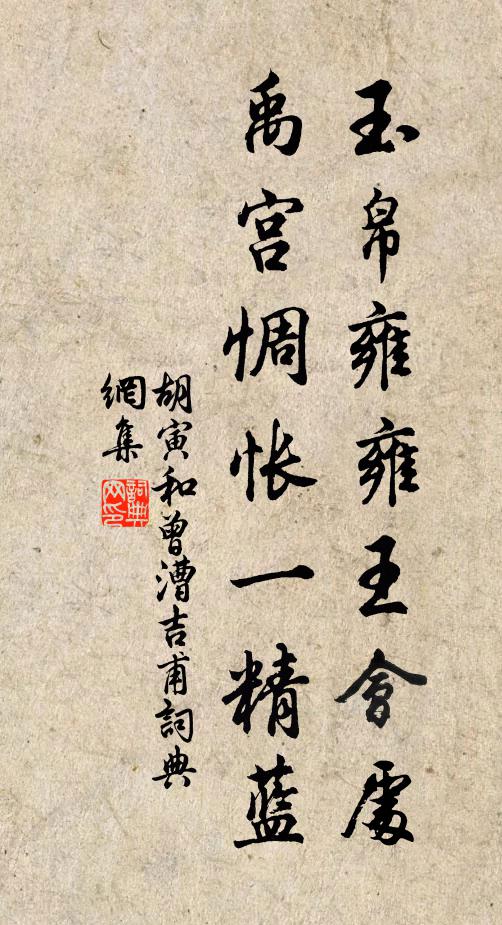 玉帛雍雍王會處
禹宮惆悵一精藍
胡寅和曾漕吉甫詞典
網集
詞典
网印